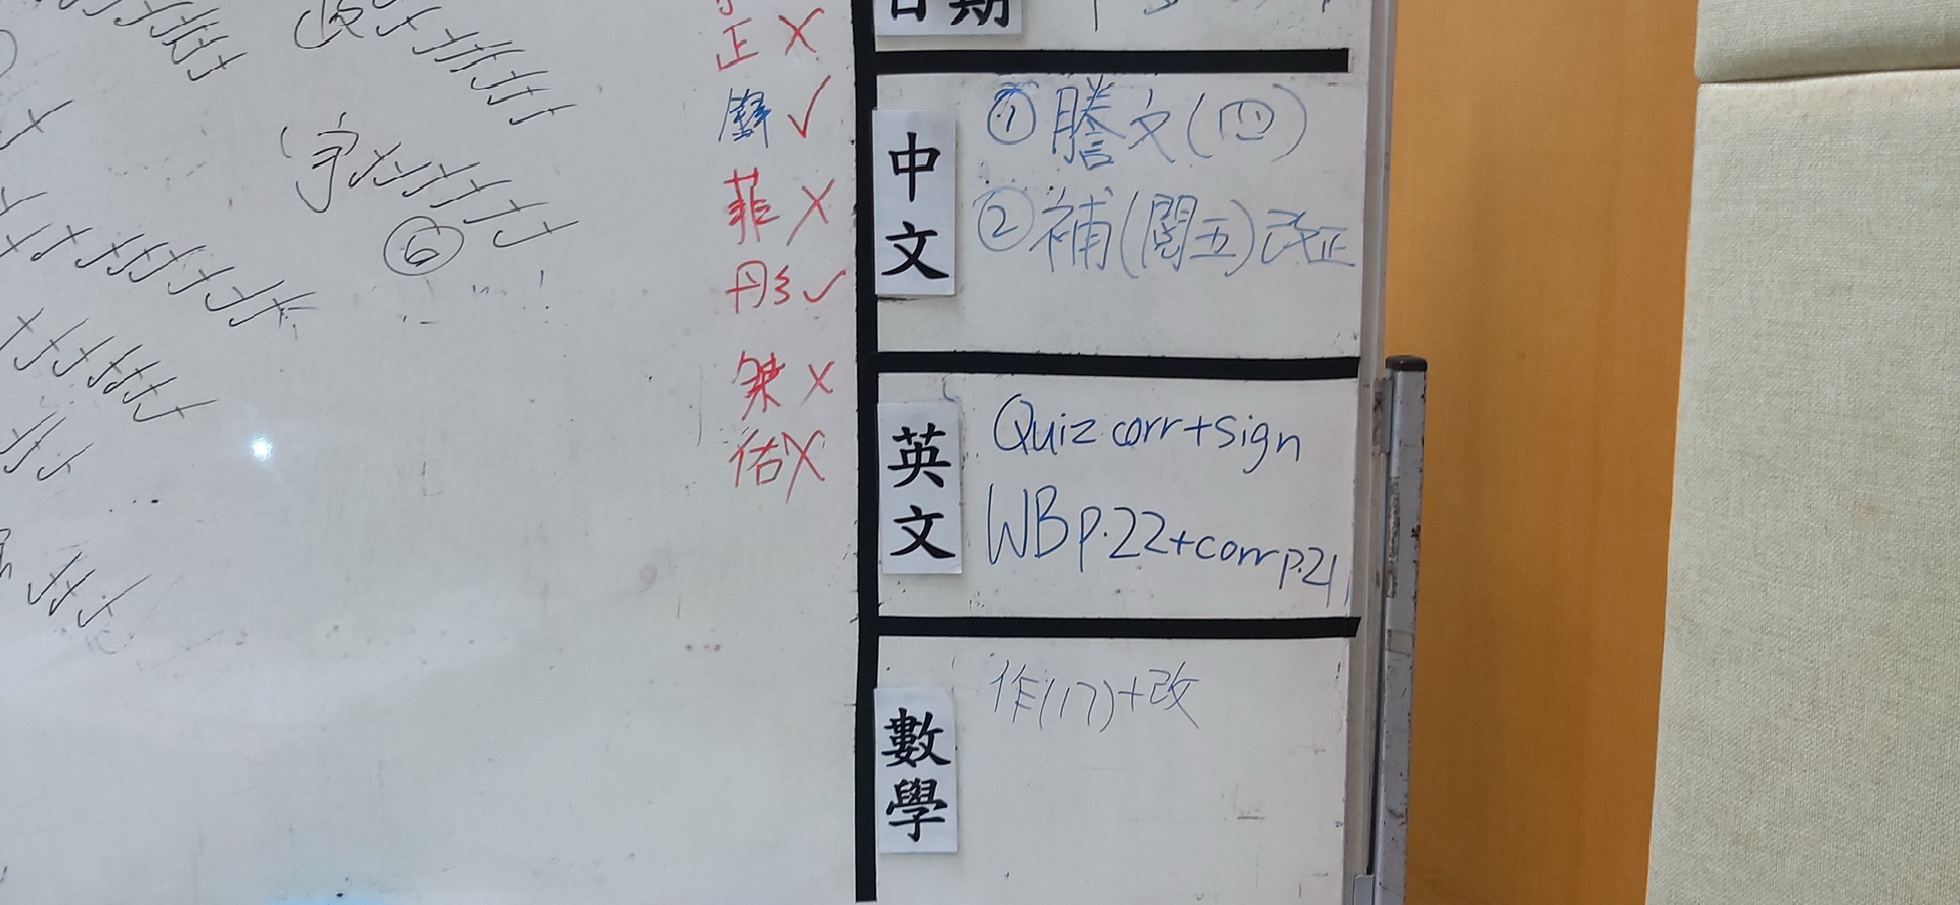 日期
正 ✗
✓
菲 ✗
彤 ✓
桀 ✗
佑 ✗
字
⑥
中文
① 謄文(四)
② 補(閱五)改正
英文
Quiz corr+sign
WB p.22+corr p.21
數學
作(17)+改